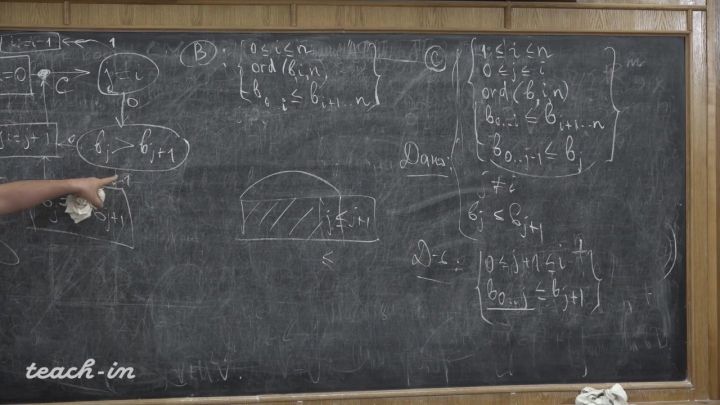 i:=i-1 1
=0 C j=i
0
j:=j+1 0 b_j > b_{j+1}
1
b_{j+1}
B : { 0≤i≤n
ord(b,i,n)
b_{0..i} ≤ b_{i+1...n} }
j ≤ j+1
≤
C
Дано: { 1≤i≤n
0≤j≤i
ord(b,i,n)
b_{0...i} ≤ b_{i+1...n}
b_{0..j-1} ≤ b_j }
j≠i
b_j ≤ b_{j+1}
Д-ть: { 0≤j+1≤i
b_{0..j} ≤ b_{j+1} }
teach-in